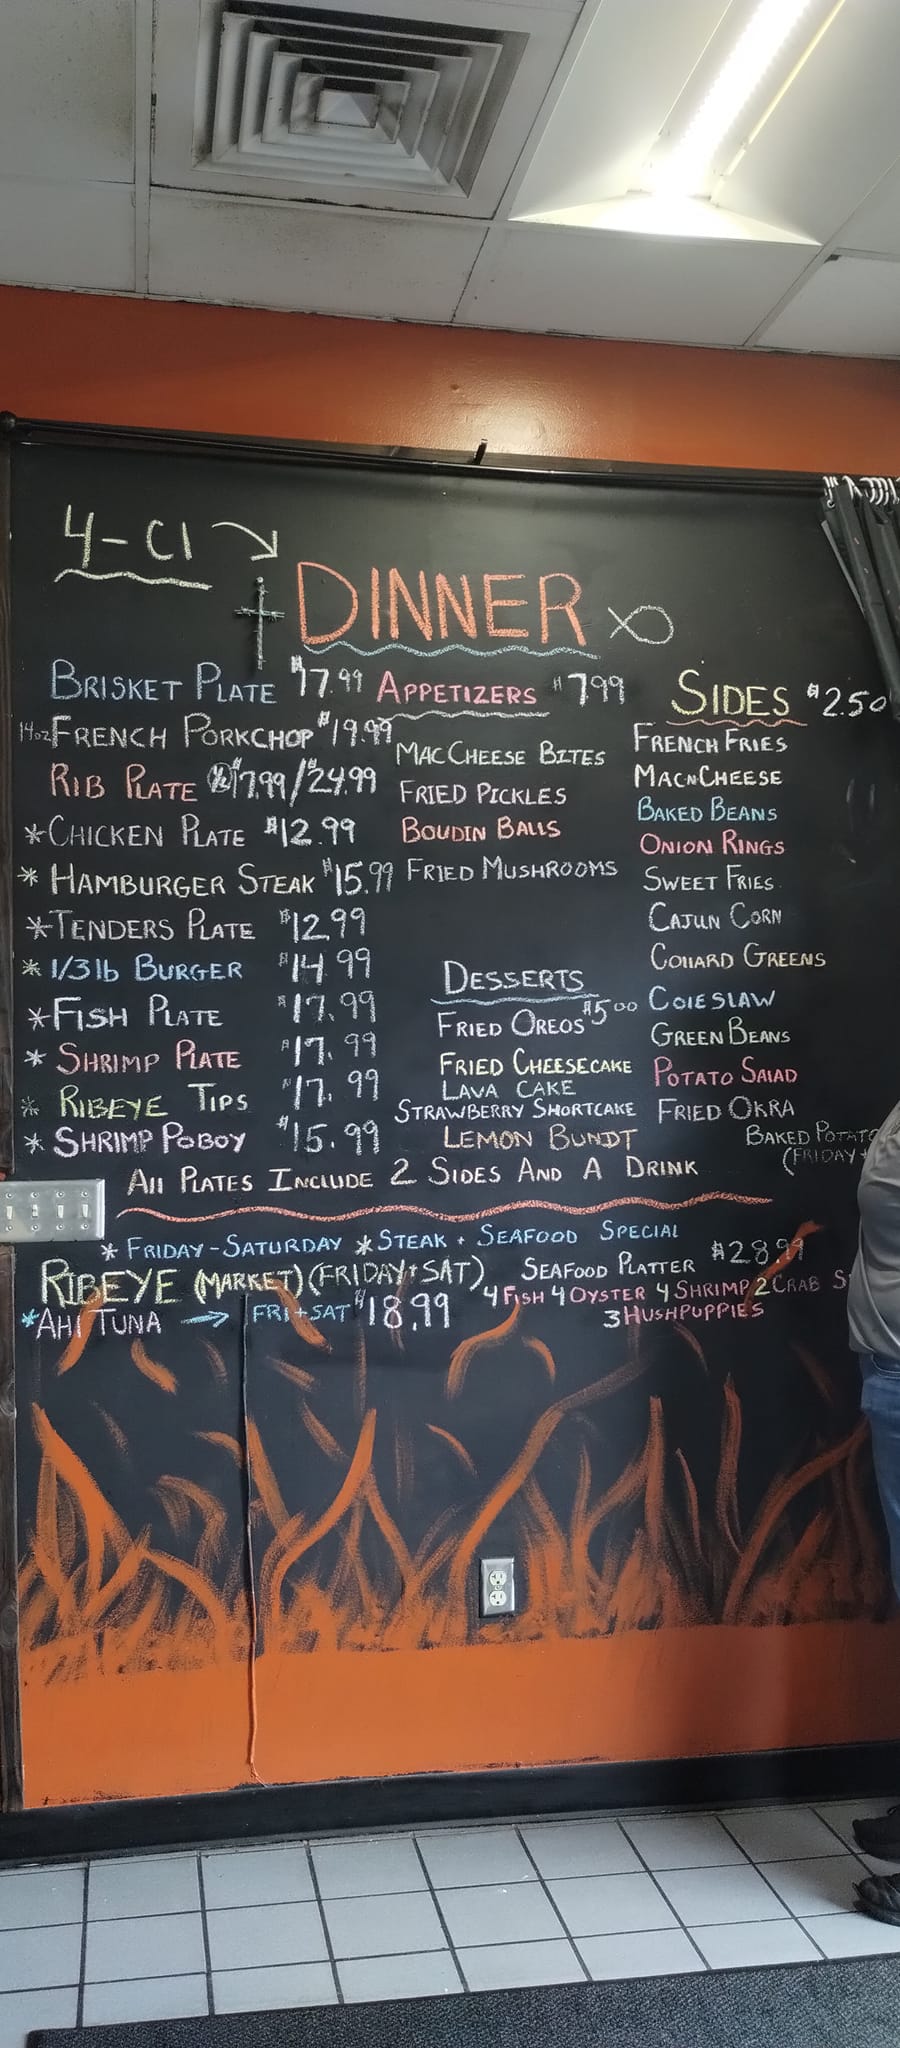 4-Cl
DINNER
BRISKET PLATE $17.99
14oz FRENCH PORKCHOP $19.99
RIB PLATE ½ $17.99/$24.99
*CHICKEN PLATE $12.99
*HAMBURGER STEAK $15.99
*TENDERS PLATE $12.99
*1/3lb BURGER $14.99
*FISH PLATE $17.99
*SHRIMP PLATE $17.99
*RIBEYE TIPS $17.99
*SHRIMP POBOY $15.99
APPETIZERS $7.99
MAC CHEESE BITES
FRIED PICKLES
BOUDIN BALLS
FRIED MUSHROOMS
DESSERTS
FRIED OREOS $5.00
FRIED CHEESECAKE
LAVA CAKE
STRAWBERRY SHORTCAKE
LEMON BUNDT
SIDES $2.50
FRENCH FRIES
MACNCHEESE
BAKED BEANS
ONION RINGS
SWEET FRIES
CAJUN CORN
COllARD GREENS
COlESLAW
GREEN BEANS
POTATO SAlAD
FRIED OKRA
BAKED POTATO
(FRIDAY+
All PLATES INCLUDE 2 SIDES AND A DRINK
*FRIDAY-SATURDAY *STEAK + SEAFOOD SPECIAL
RIBEYE (MARKET) (FRIDAY+SAT)
*AHI TUNA → FRI+SAT $18.99
SEAFOOD PLATTER $28.99
4 FISH 4 OYSTER 4 SHRIMP 2 CRAB
3 HUSHPUPPIES